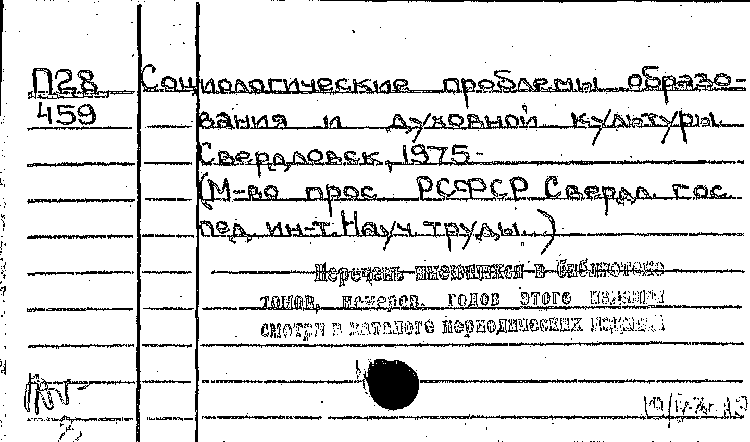 П28 Социологические проблемы образо-
459 вания и духовной культуры
Свердловск, 1975-
(М-во прос РСФСР Свердл. гос
пед. ин-т. Науч. труды. )
Перечень имеющихся в библиотеке
томов, номеров, годов этого издания
смотри в каталоге периодических изданий